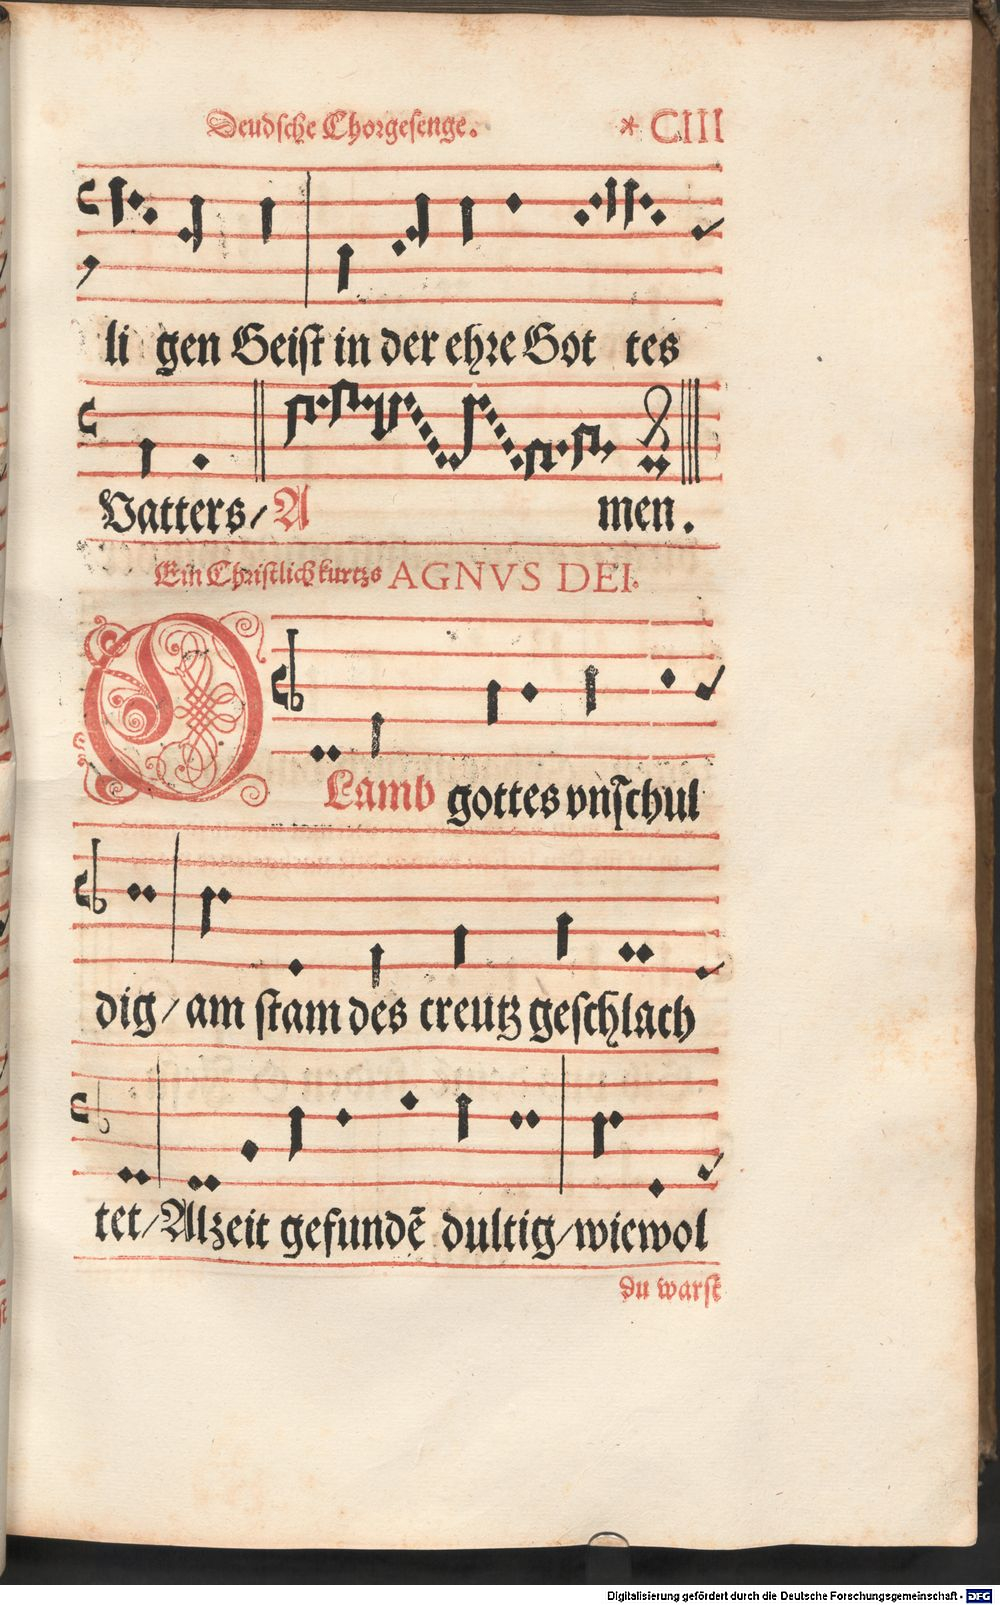 Deudsche Chorgesenge. * CIII
li gen Geist in der ehre Got tes
Vatters/ A men.
Ein Christlich kurtzs AGNVS DEI.
O Lamb gottes vnschul
dig/ am stam des creutz geschlach
tet/ Alzeit gefundē dultig/ wiewol
du warst
Digitalisierung gefördert durch die Deutsche Forschungsgemeinschaft - DFG